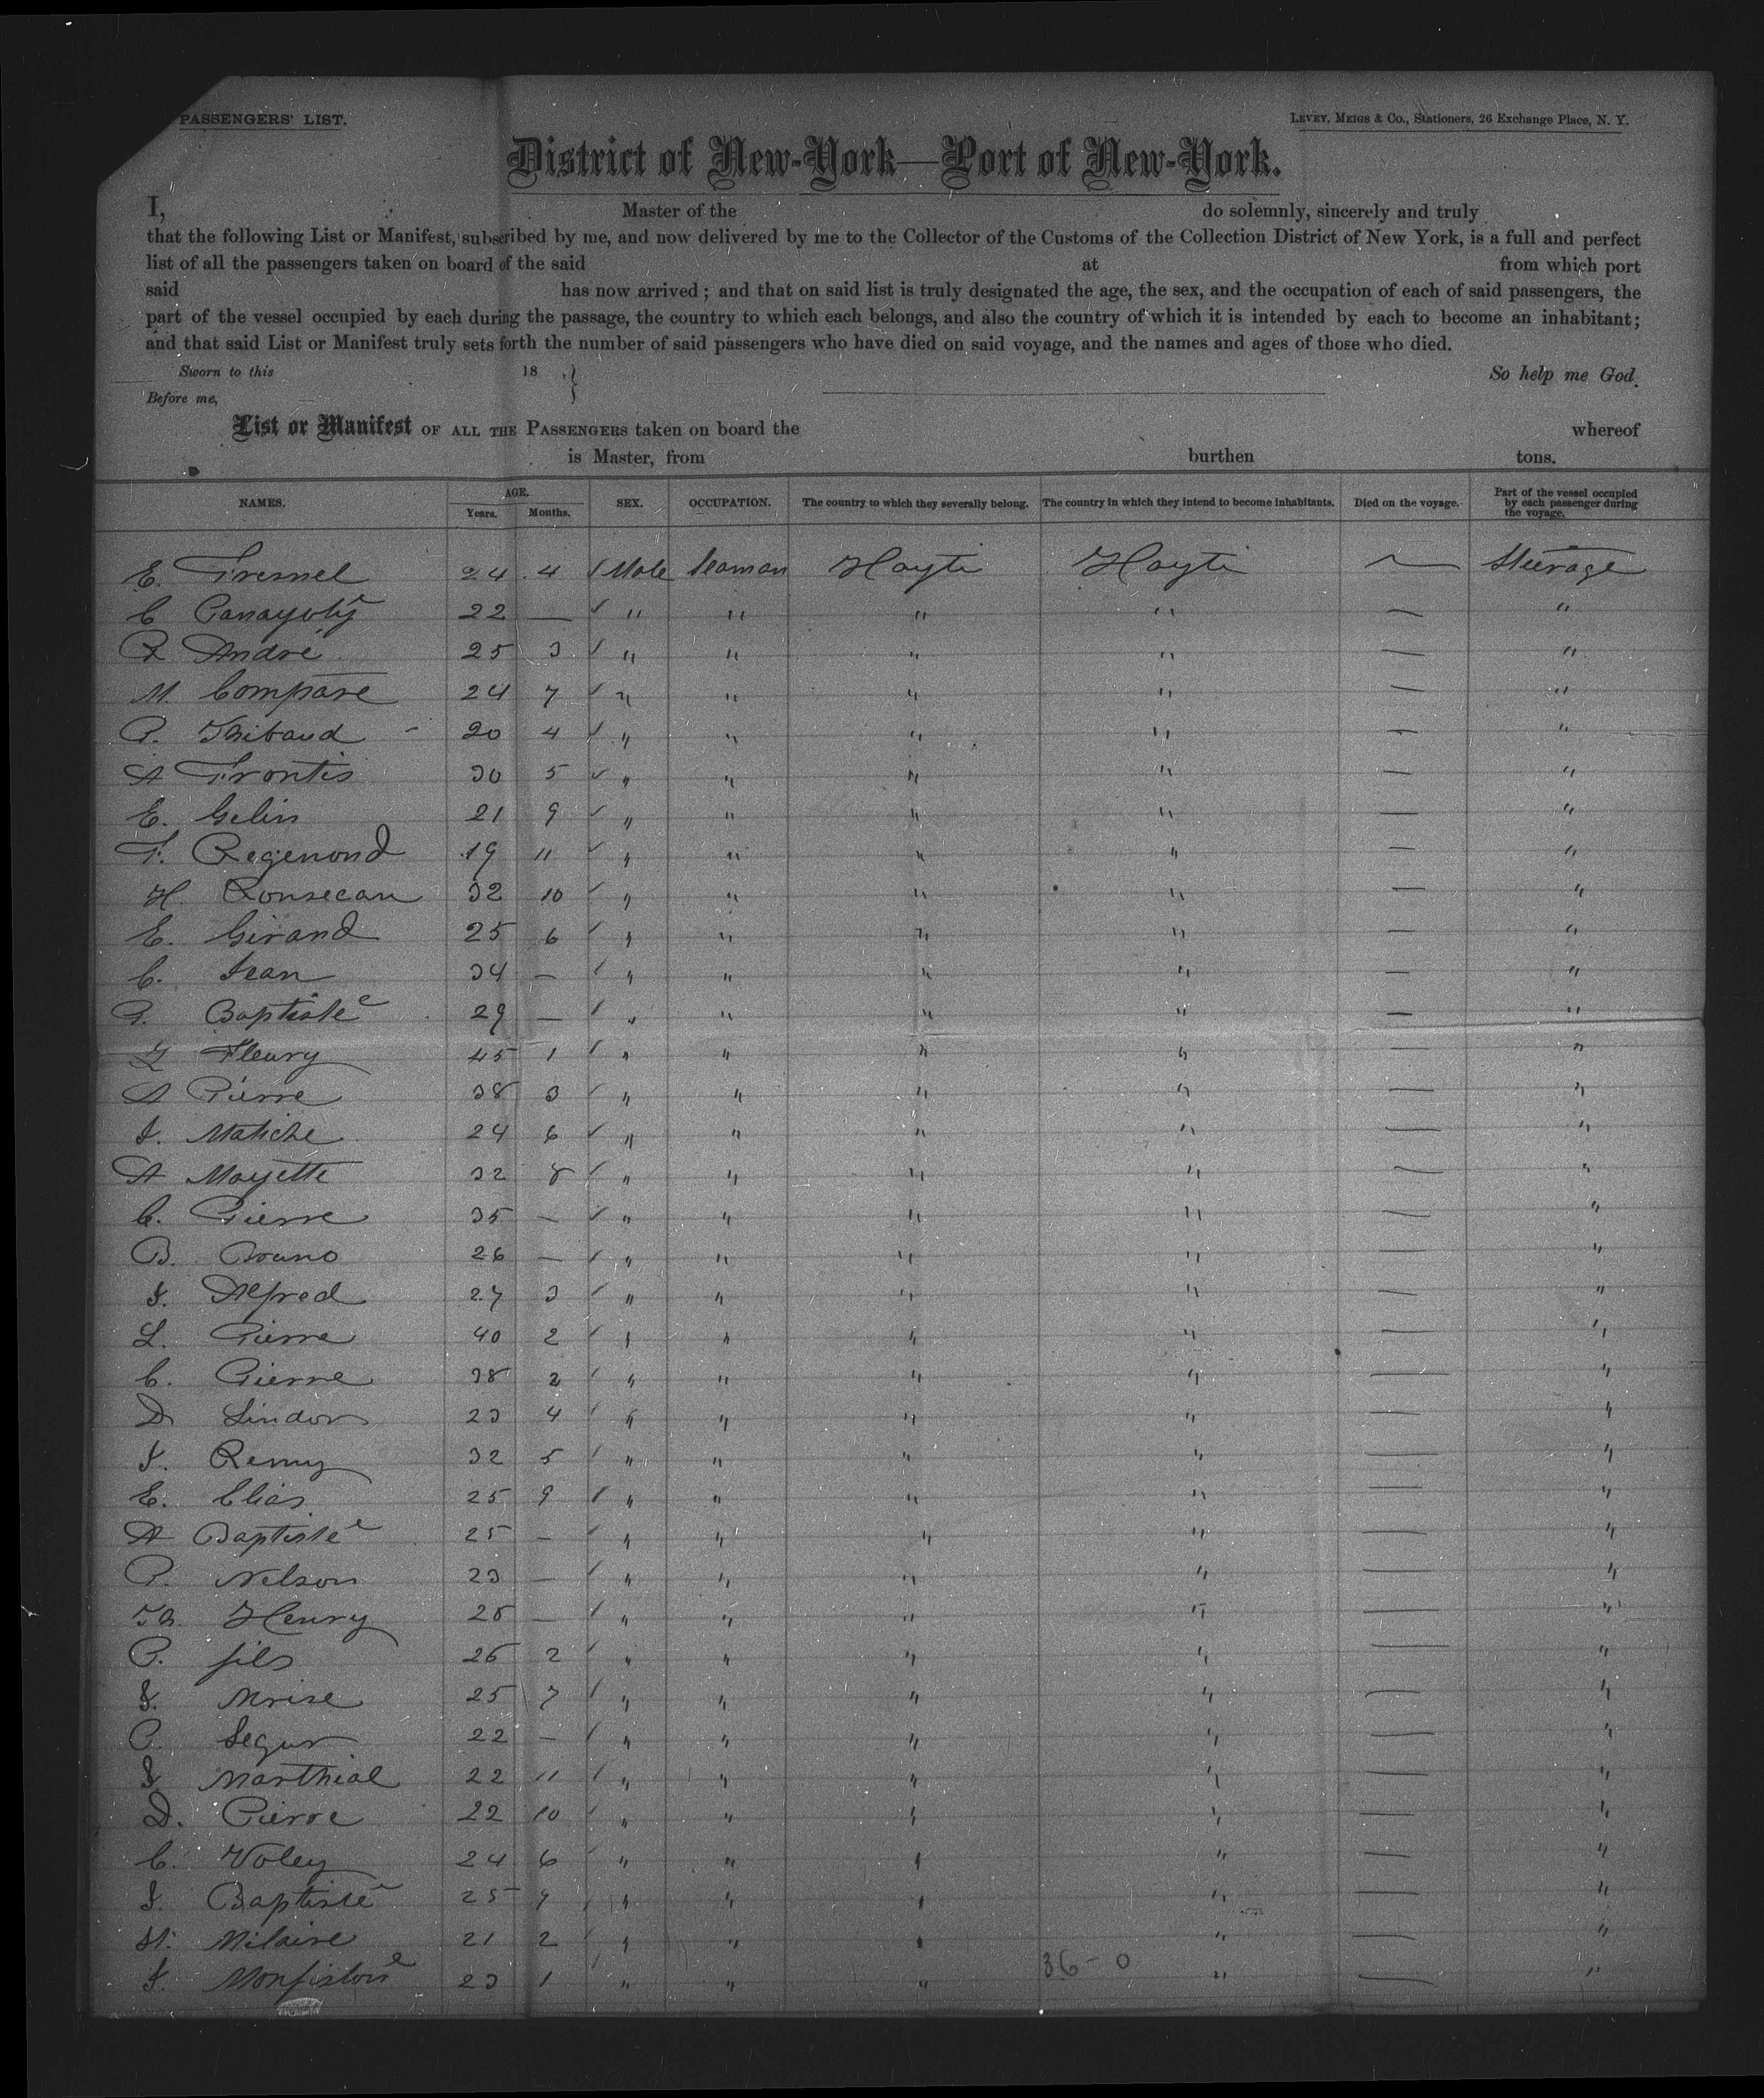 PASSENGERS' LIST.
LEVEY, MEIGS & CO., Stationers, 26 Exchange Place, N. Y.
District of New-York—Port of New-York.
I, Master of the do solemnly, sincerely and truly
that the following List or Manifest, subscribed by me, and now delivered by me to the Collector of the Customs of the Collection District of New York, is a full and perfect
list of all the passengers taken on board of the said at from which port
said has now arrived; and that on said list is truly designated the age, the sex, and the occupation of each of said passengers, the
part of the vessel occupied by each during the passage, the country to which each belongs, and also the country of which it is intended by each to become an inhabitant;
and that said List or Manifest truly sets forth the number of said passengers who have died on said voyage, and the names and ages of those who died.
Sworn to this 18 So help me God.
Before me,
List or Manifest OF ALL THE PASSENGERS taken on board the whereof
is Master, from burthen tons.
NAMES. AGE. Years. Months. SEX. OCCUPATION. The country to which they severally belong. The country in which they intend to become inhabitants. Died on the voyage. Part of the vessel occupied by each passenger during the voyage.
E. Fresnel 24 4 Male Seaman Hayti Hayti — Steerage
C Panayoty 22 — " " " " — "
R André 25 3 " " " " — "
M. Compare 24 7 " " " " — "
P. Thibaud 20 4 " " " " — "
A Frontis 30 5 " " " " — "
E. Gelin 21 9 " " " " — "
F. Regenond 19 11 " " " " — "
H. Ronsecan 32 10 " " " " — "
E. Girand 25 6 " " " " — "
C. Jean 34 — " " " " — "
P. Baptiste 29 — " " " " — "
Z Fleury 45 1 " " " " — "
A Pierre 38 3 " " " " — "
J. Matiche 24 6 " " " " — "
A Mayette 32 8 " " " " — "
C. Pierre 35 — " " " " — "
B. Bruno 26 — " " " " — "
J. Alfred 27 3 " " " " — "
L. Pierre 40 2 " " " " — "
C. Pierre 38 2 " " " " — "
D Lindor 23 4 " " " " — "
J. Remy 32 5 " " " " — "
E. Elias 25 9 " " " " — "
A Baptiste 25 — " " " " — "
P. Nelson 23 — " " " " — "
Th. Henry 25 — " " " " — "
P. fils 26 2 " " " " — "
J. Mrise 25 7 " " " " — "
P. Segur 22 — " " " " — "
J. Marthial 22 11 " " " " — "
D. Pierre 22 10 " " " " — "
C. Voley 24 6 " " " " — "
J. Baptiste 25 9 " " " " — "
St. Hilaire 21 2 " " " " — "
J. Monfiston 23 1 " " " " — "
36 - 0